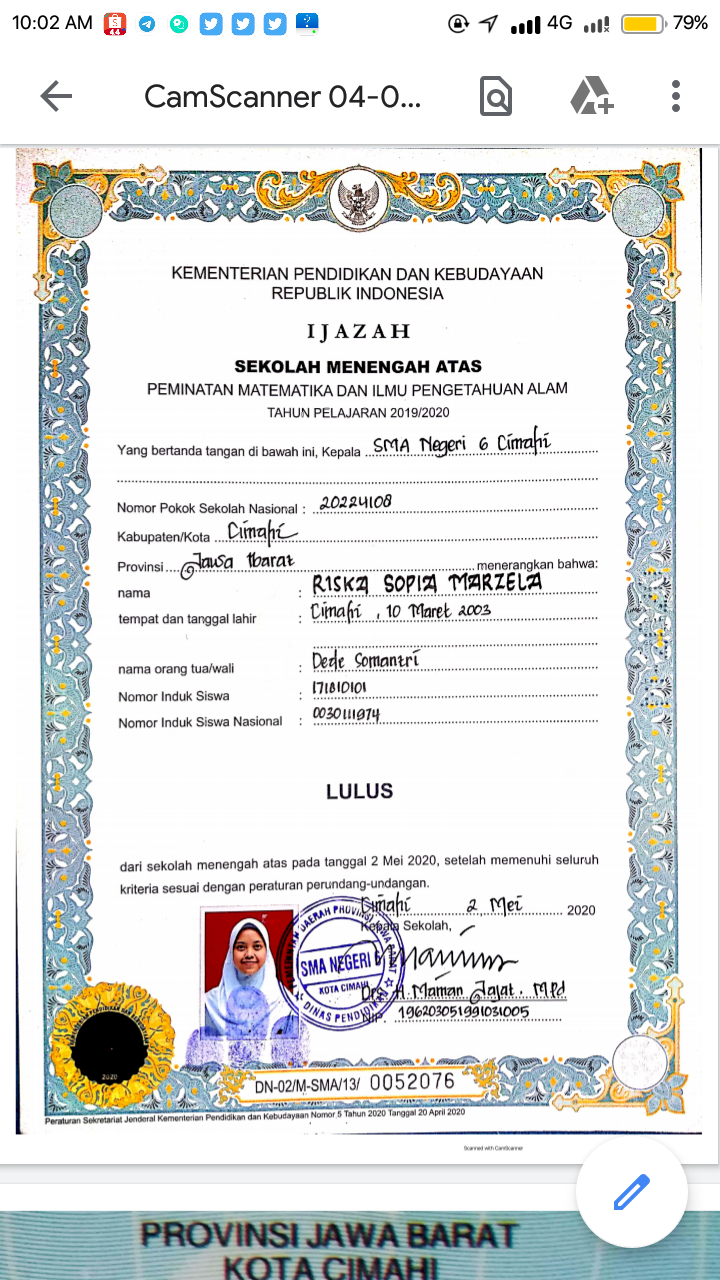 10:02 AM
4G
79%
CamScanner 04-0...
KEMENTERIAN PENDIDIKAN DAN KEBUDAYAAN
REPUBLIK INDONESIA
IJAZAH
SEKOLAH MENENGAH ATAS
PEMINATAN MATEMATIKA DAN ILMU PENGETAHUAN ALAM
TAHUN PELAJARAN 2019/2020
Yang bertanda tangan di bawah ini, Kepala SMA Negeri 6 Cimahi
Nomor Pokok Sekolah Nasional : 20224108
Kabupaten/Kota Cimahi
Provinsi Jawa Barat menerangkan bahwa:
nama : RISKA SOPIA MARZELA
tempat dan tanggal lahir : Cimahi, 10 Maret 2003
nama orang tua/wali : Dede Somantri
Nomor Induk Siswa : 171810101
Nomor Induk Siswa Nasional : 0030111974
LULUS
dari sekolah menengah atas pada tanggal 2 Mei 2020, setelah memenuhi seluruh
kriteria sesuai dengan peraturan perundang-undangan.
Cimahi 2 Mei 2020
Kepala Sekolah,
PEMERINTAH DAERAH PROVINSI JAWA BARAT
SMA NEGERI 6
KOTA CIMAHI
DINAS PENDIDIKAN
Drs. H. Maman Jajat. MPd
NIP. 196203051991031005
2020
DN-02/M-SMA/13/ 0052076
Peraturan Sekretariat Jenderal Kementerian Pendidikan dan Kebudayaan Nomor 5 Tahun 2020 Tanggal 20 April 2020
Scanned with CamScanner
PROVINSI JAWA BARAT
KOTA CIMAHI